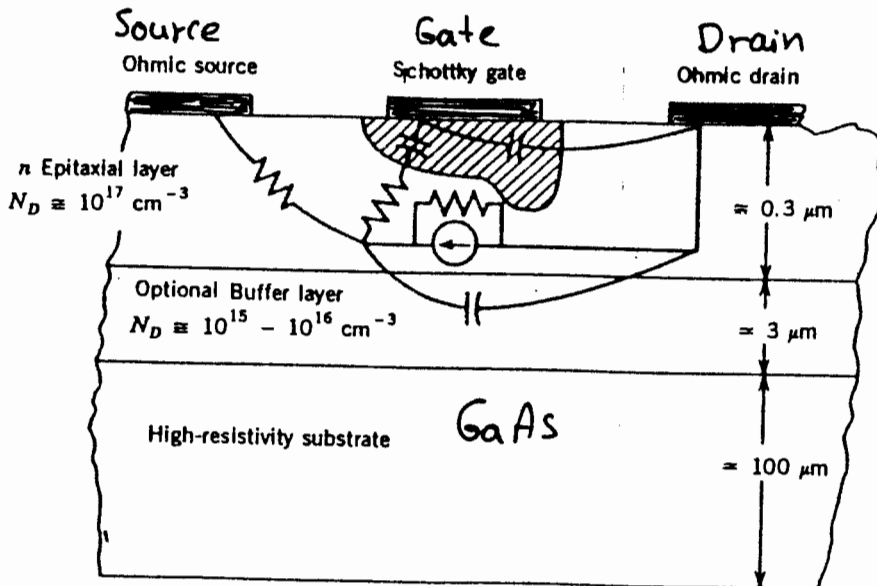 Source
Gate
Drain
Ohmic source
Schottky gate
Ohmic drain
n Epitaxial layer
N_D ≅ 10^17 cm^-3
≃ 0.3 μm
Optional Buffer layer
N_D ≅ 10^15 - 10^16 cm^-3
≃ 3 μm
High-resistivity substrate
GaAs
≃ 100 μm